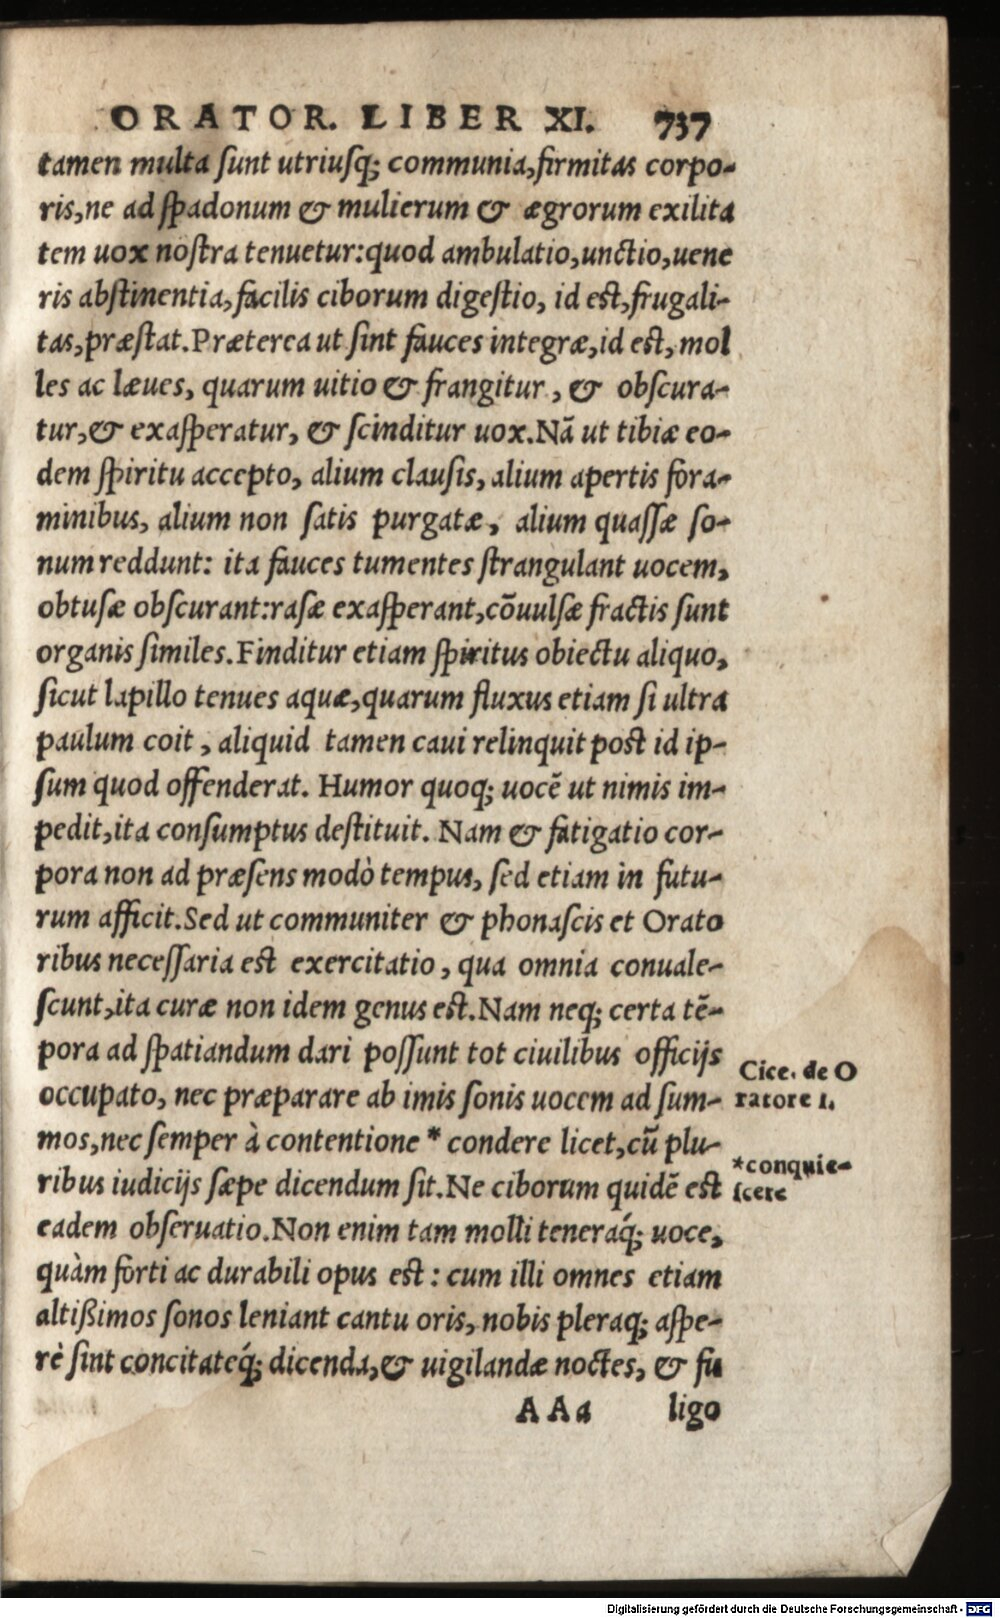 ORATOR. LIBER XI. 737
tamen multa sunt utriusq; communia, firmitas corpo-
ris, ne ad spadonum & mulierum & ægrorum exilita
tem uox nostra tenuetur: quod ambulatio, unctio, uene
ris abstinentia, facilis ciborum digestio, id est, frugali-
tas, præstat. Præterea ut sint fauces integræ, id est, mol
les ac læues, quarum uitio & frangitur, & obscura-
tur, & exasperatur, & scinditur uox. Nã ut tibiæ eo-
dem spiritu accepto, alium clausis, alium apertis fora-
minibus, alium non satis purgatæ, alium quassæ so-
num reddunt: ita fauces tumentes strangulant uocem,
obtusæ obscurant: rasæ exasperant, cõuulsæ fractis sunt
organis similes. Finditur etiam spiritus obiectu aliquo,
sicut lapillo tenues aquæ, quarum fluxus etiam si ultra
paulum coit, aliquid tamen caui relinquit post id ip-
sum quod offenderat. Humor quoq; uocẽ ut nimis im-
pedit, ita consumptus destituit. Nam & fatigatio cor-
pora non ad præsens modò tempus, sed etiam in futu-
rum afficit. Sed ut communiter & phonascis et Orato
ribus necessaria est exercitatio, qua omnia conuale-
scunt, ita curæ non idem genus est. Nam neq; certa tẽ-
pora ad spatiandum dari possunt tot ciuilibus officijs
occupato, nec præparare ab imis sonis uocem ad sum-
mos, nec semper à contentione * condere licet, cũ plu-
ribus iudicijs sæpe dicendum sit. Ne ciborum quidẽ est
eadem obseruatio. Non enim tam molli teneraq́; uoce,
quàm forti ac durabili opus est: cum illi omnes etiam
altißimos sonos leniant cantu oris, nobis pleraq; aspe-
rè sint concitateq́; dicenda, & uigilandæ noctes, & fu
AAa ligo
Cice. de O
ratore 1.
*conquie-
scere
Digitalisierung gefördert durch die Deutsche Forschungsgemeinschaft - DFG